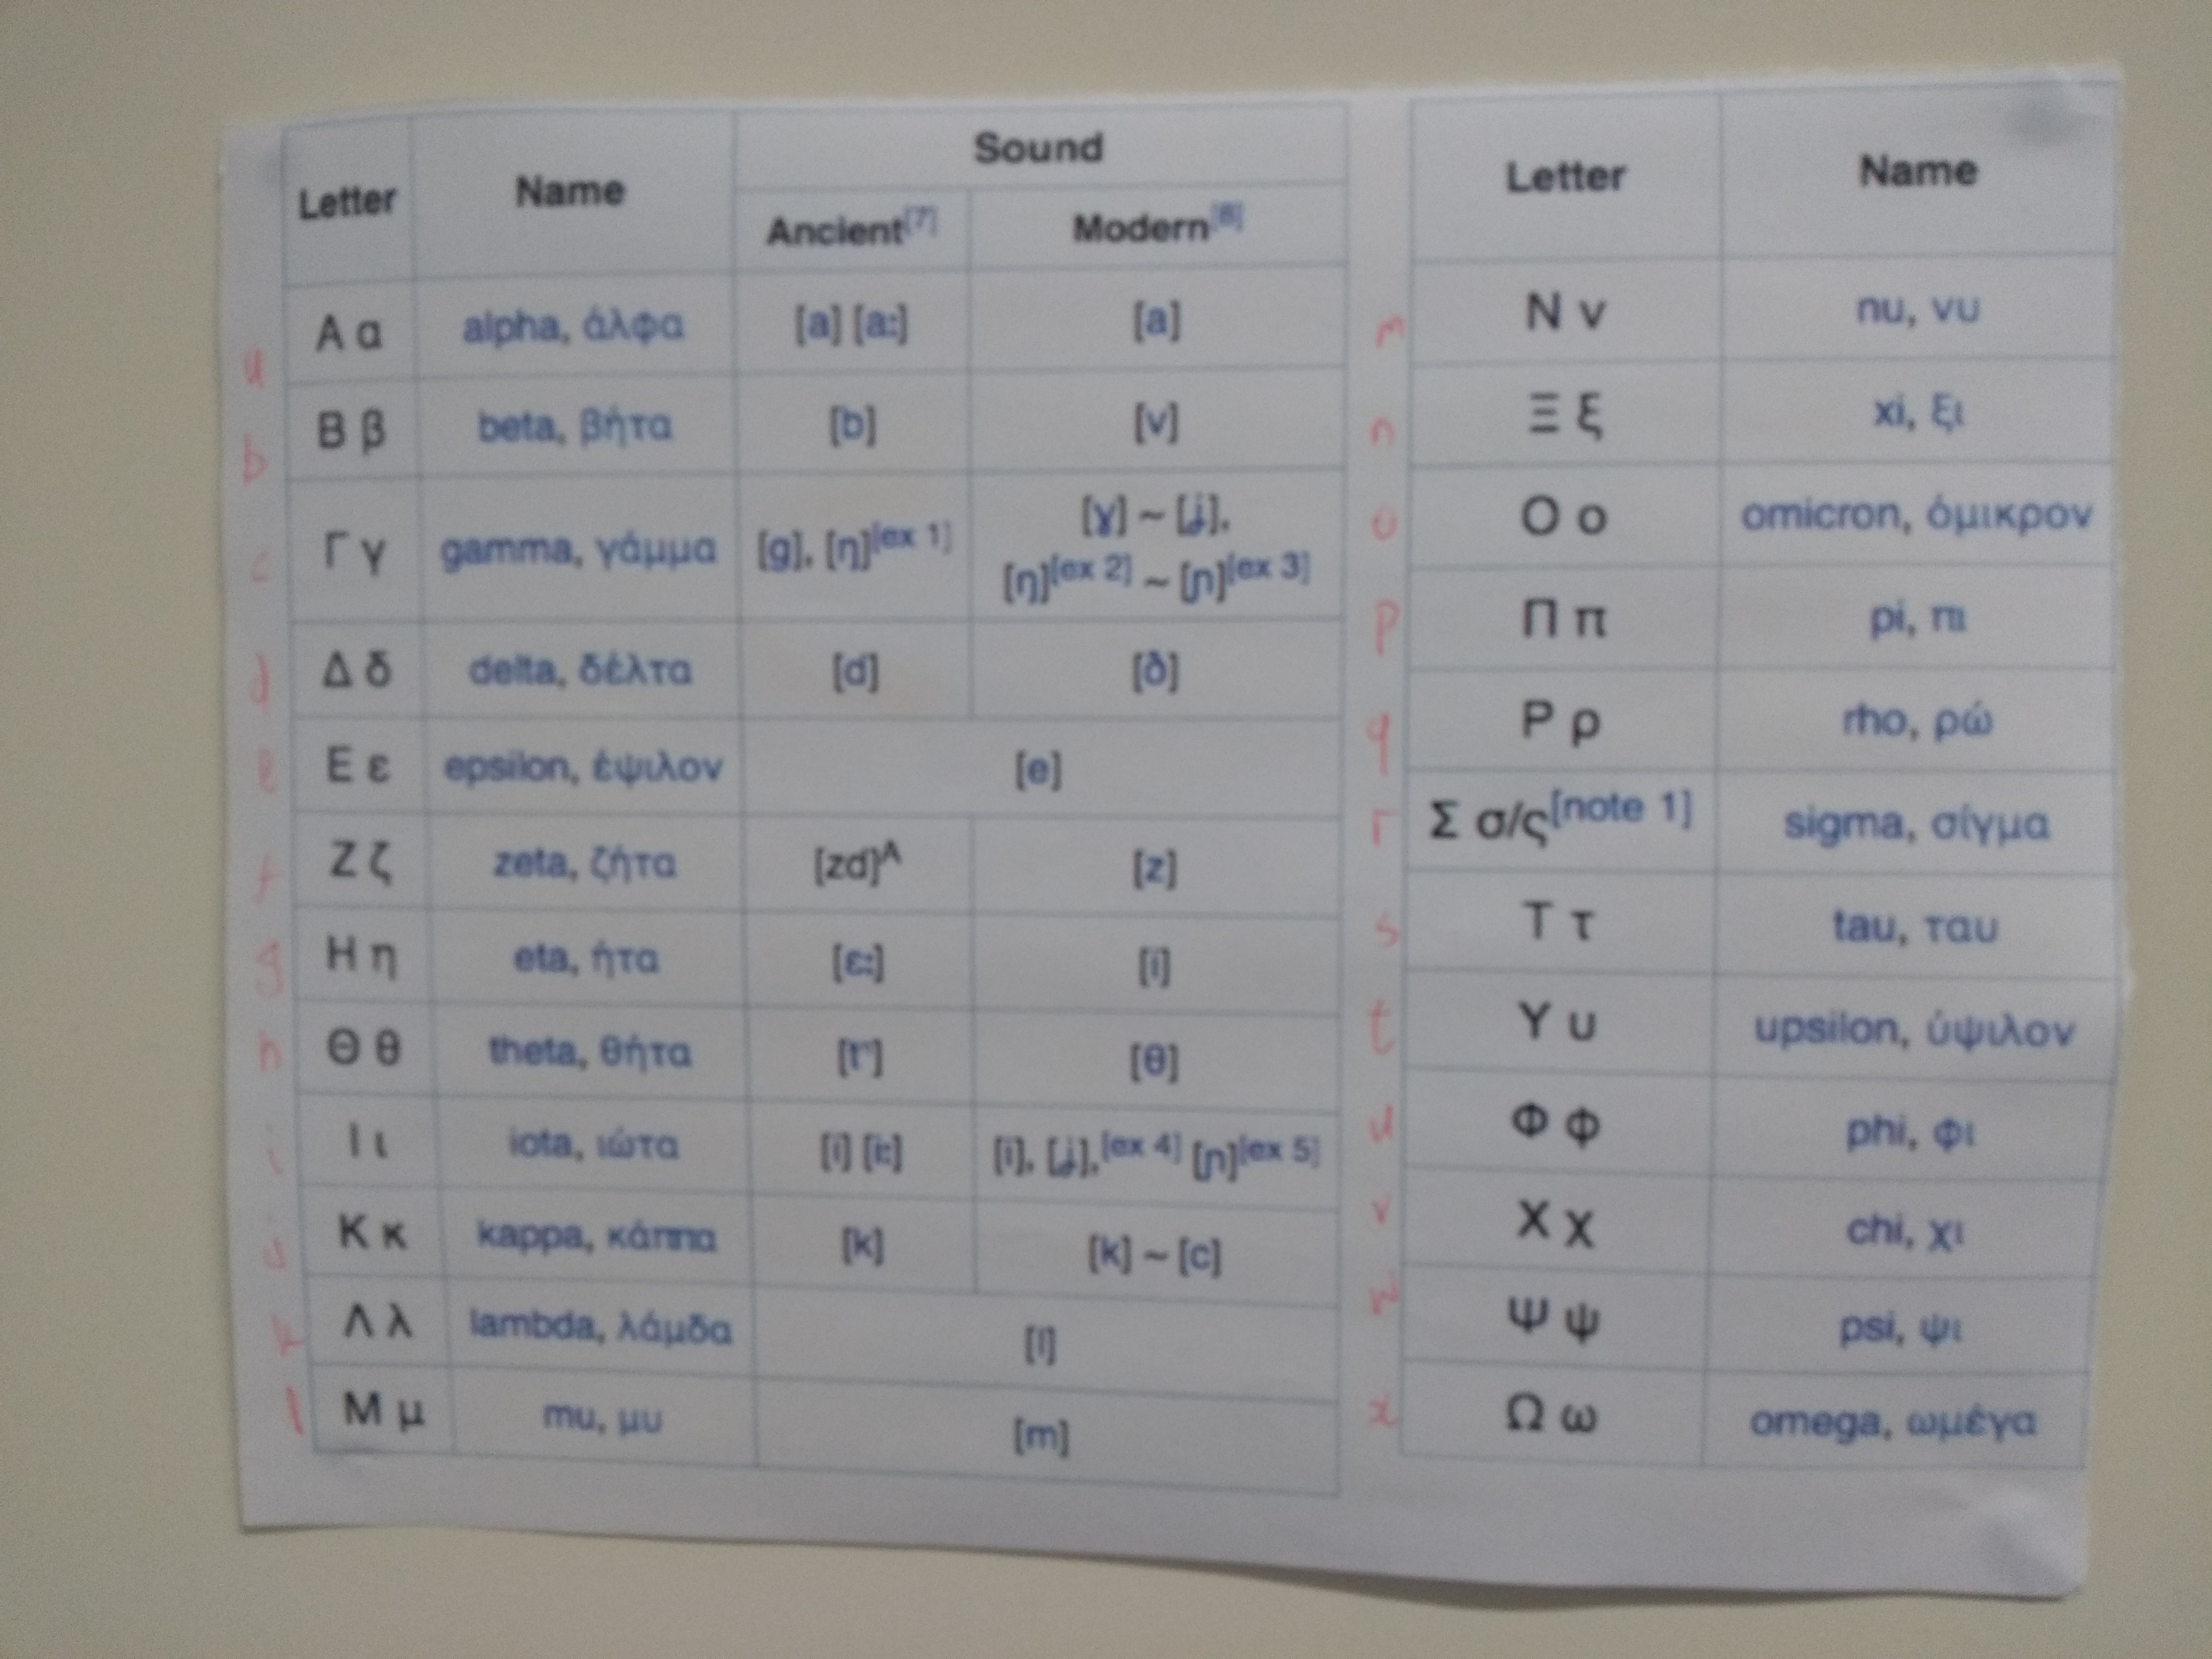 Letter Name Sound
Ancient[7] Modern[8]
a Α α alpha, άλφα [a] [aː] [a]
b Β β beta, βήτα [b] [v]
c Γ γ gamma, γάμμα [ɡ], [ŋ][ex 1] [ɣ] ~ [ʝ],
[ŋ][ex 2] ~ [ɲ][ex 3]
d Δ δ delta, δέλτα [d] [ð]
e Ε ε epsilon, έψιλον [e]
f Ζ ζ zeta, ζήτα [zd]A [z]
g Η η eta, ήτα [ɛː] [i]
h Θ θ theta, θήτα [tʰ] [θ]
i Ι ι iota, ιώτα [i] [iː] [i], [ʝ],[ex 4] [ɲ][ex 5]
j Κ κ kappa, κάππα [k] [k] ~ [c]
k Λ λ lambda, λάμδα [l]
l Μ μ mu, μυ [m]
Letter Name
m Ν ν nu, νυ
n Ξ ξ xi, ξι
o Ο ο omicron, όμικρον
p Π π pi, πι
q Ρ ρ rho, ρώ
r Σ σ/ς[note 1] sigma, σίγμα
s Τ τ tau, ταυ
t Υ υ upsilon, ύψιλον
u Φ φ phi, φι
v Χ χ chi, χι
w Ψ ψ psi, ψι
x Ω ω omega, ωμέγα